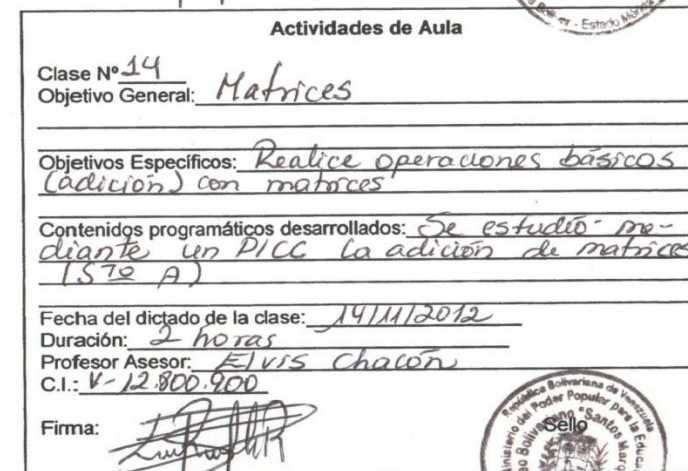 Bolívar - Estado Mérida
Actividades de Aula
Clase Nº 14
Objetivo General: Matrices
Objetivos Específicos: Realice operaciones básicos
(adición) con matrices
Contenidos programáticos desarrollados: Se estudió me-
diante un PICC la adición de matrices
(5TO A)
Fecha del dictado de la clase: 14/11/2012
Duración: 2 horas
Profesor Asesor: Elvis Chacón
C.I.: V-12.800.900
Firma:
Sello
República Bolivariana de Venezuela
Ministerio del Poder Popular para la Educa
Bolivariano "Santos Mar